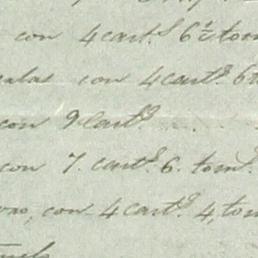 con 4 cart.s 6½ tom
con 4 cart.s 6
con 9 cart.s
con 7. cart.s 6. tom.s
con 4 cart.s 4, tom